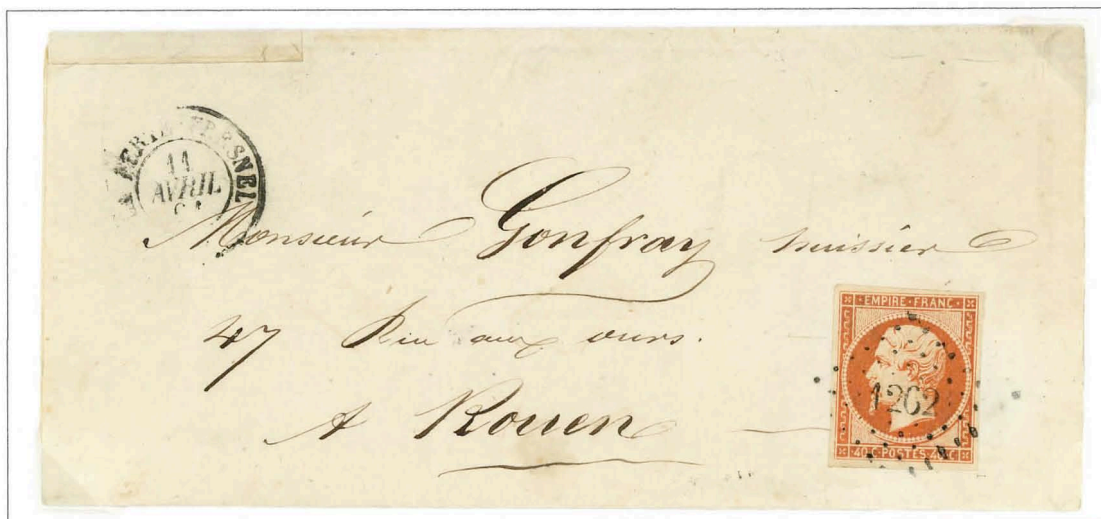 FRESNEL
11
AVRIL
Monsieur Gonfray huissier
47 Rue aux ours.
A Rouen
EMPIRE FRANC
1262
40 C POSTES 40 C